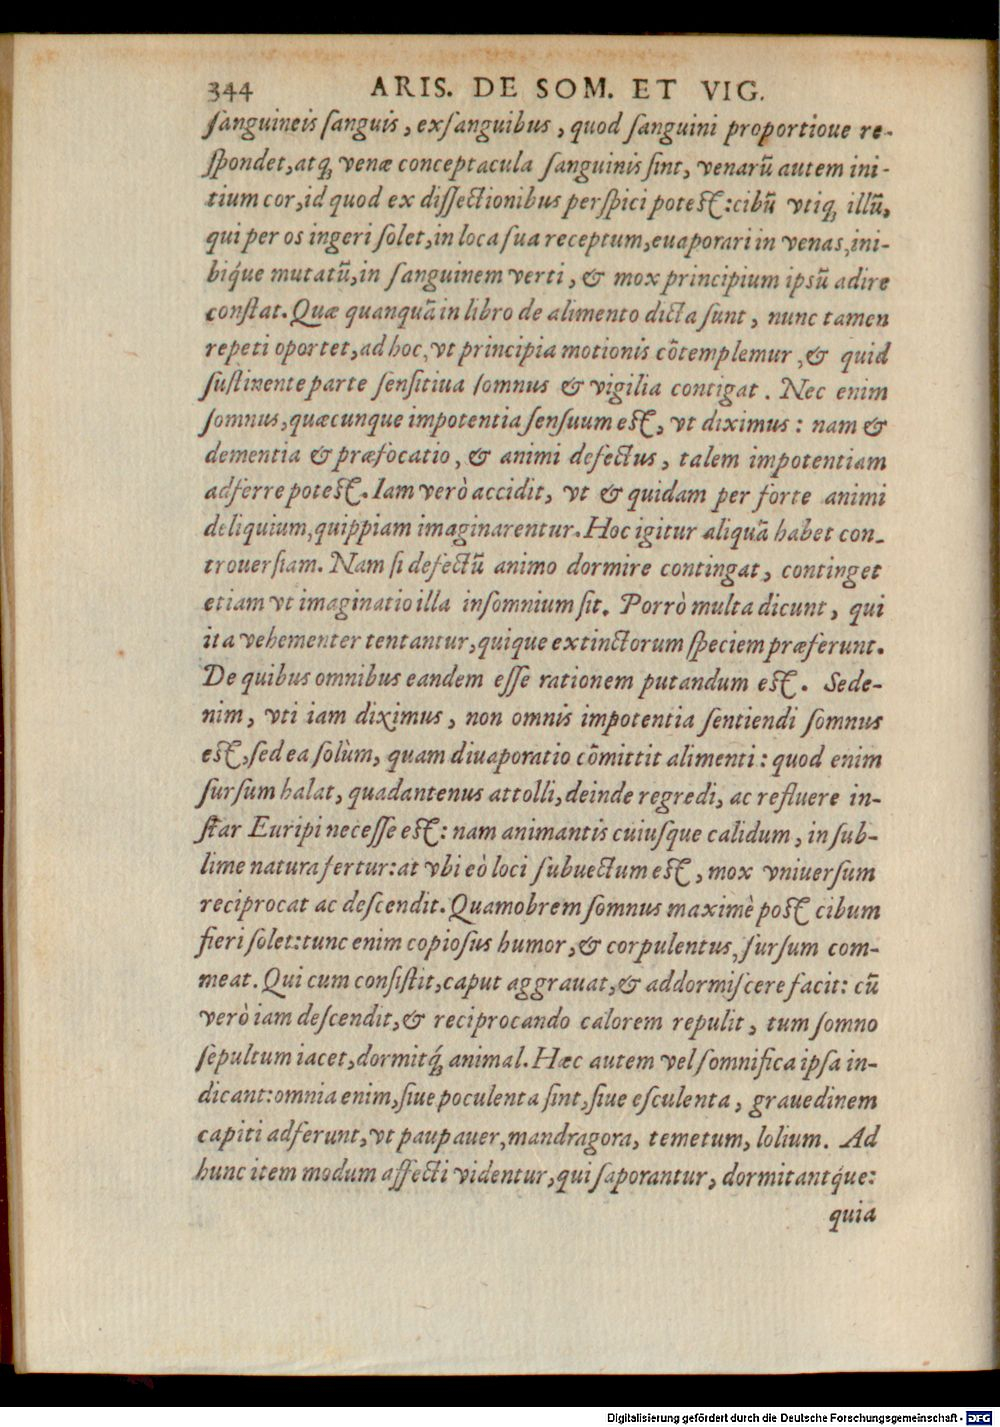 344 ARIS. DE SOM. ET VIG.
ſanguineis ſanguis, exſanguibus, quod ſanguini proportioue re-
ſpondet, atq; venæ conceptacula ſanguinis ſint, venarũ autem ini-
tium cor, id quod ex diſſectionibus perſpici poteſt: cibũ vtiq; illũ,
qui per os ingeri ſolet, in loca ſua receptum, euaporari in venas, ini-
biq́ue mutatũ, in ſanguinem verti, & mox principium ipſũ adire
conſtat. Quæ quanquã in libro de alimento dicta ſunt, nunc tamen
repeti oportet, ad hoc, vt principia motionis cõtemplemur, & quid
ſuſtinente parte ſenſitiua ſomnus & vigilia contigat. Nec enim
ſomnus, quæcunque impotentia ſenſuum eſt, vt diximus: nam &
dementia & præfocatio, & animi defectus, talem impotentiam
adferre poteſt. Iam verò accidit, vt & quidam per forte animi
deliquium, quippiam imaginarentur. Hoc igitur aliquã habet con-
trouerſiam. Nam ſi defectũ animo dormire contingat, continget
etiam vt imaginatio illa inſomnium ſit. Porrò multa dicunt, qui
ita vehementer tentantur, quique extinctorum ſpeciem præferunt.
De quibus omnibus eandem eſſe rationem putandum eſt. Sede-
nim, vti iam diximus, non omnis impotentia ſentiendi ſomnus
eſt, ſed ea ſolùm, quam diuaporatio cõmittit alimenti: quod enim
ſurſum halat, quadantenus attolli, deinde regredi, ac refluere in-
ſtar Euripi neceſſe eſt: nam animantis cuiuſque calidum, in ſub-
lime natura fertur: at vbi eò loci ſubuectum eſt, mox vniuerſum
reciprocat ac deſcendit. Quamobrem ſomnus maximè poſt cibum
fieri ſolet: tunc enim copioſus humor, & corpulentus, ſurſum com-
meat. Qui cum conſiſtit, caput aggrauat, & addormiſcere facit: cũ
verò iam deſcendit, & reciprocando calorem repulit, tum ſomno
ſepultum iacet, dormitq́; animal. Hæc autem vel ſomnifica ipſa in-
dicant: omnia enim, ſiue poculenta ſint, ſiue eſculenta, grauedinem
capiti adferunt, vt paupauer, mandragora, temetum, lolium. Ad
hunc item modum affecti videntur, qui ſaporantur, dormitantq́ue:
quia
Digitalisierung gefördert durch die Deutsche Forschungsgemeinschaft - DFG